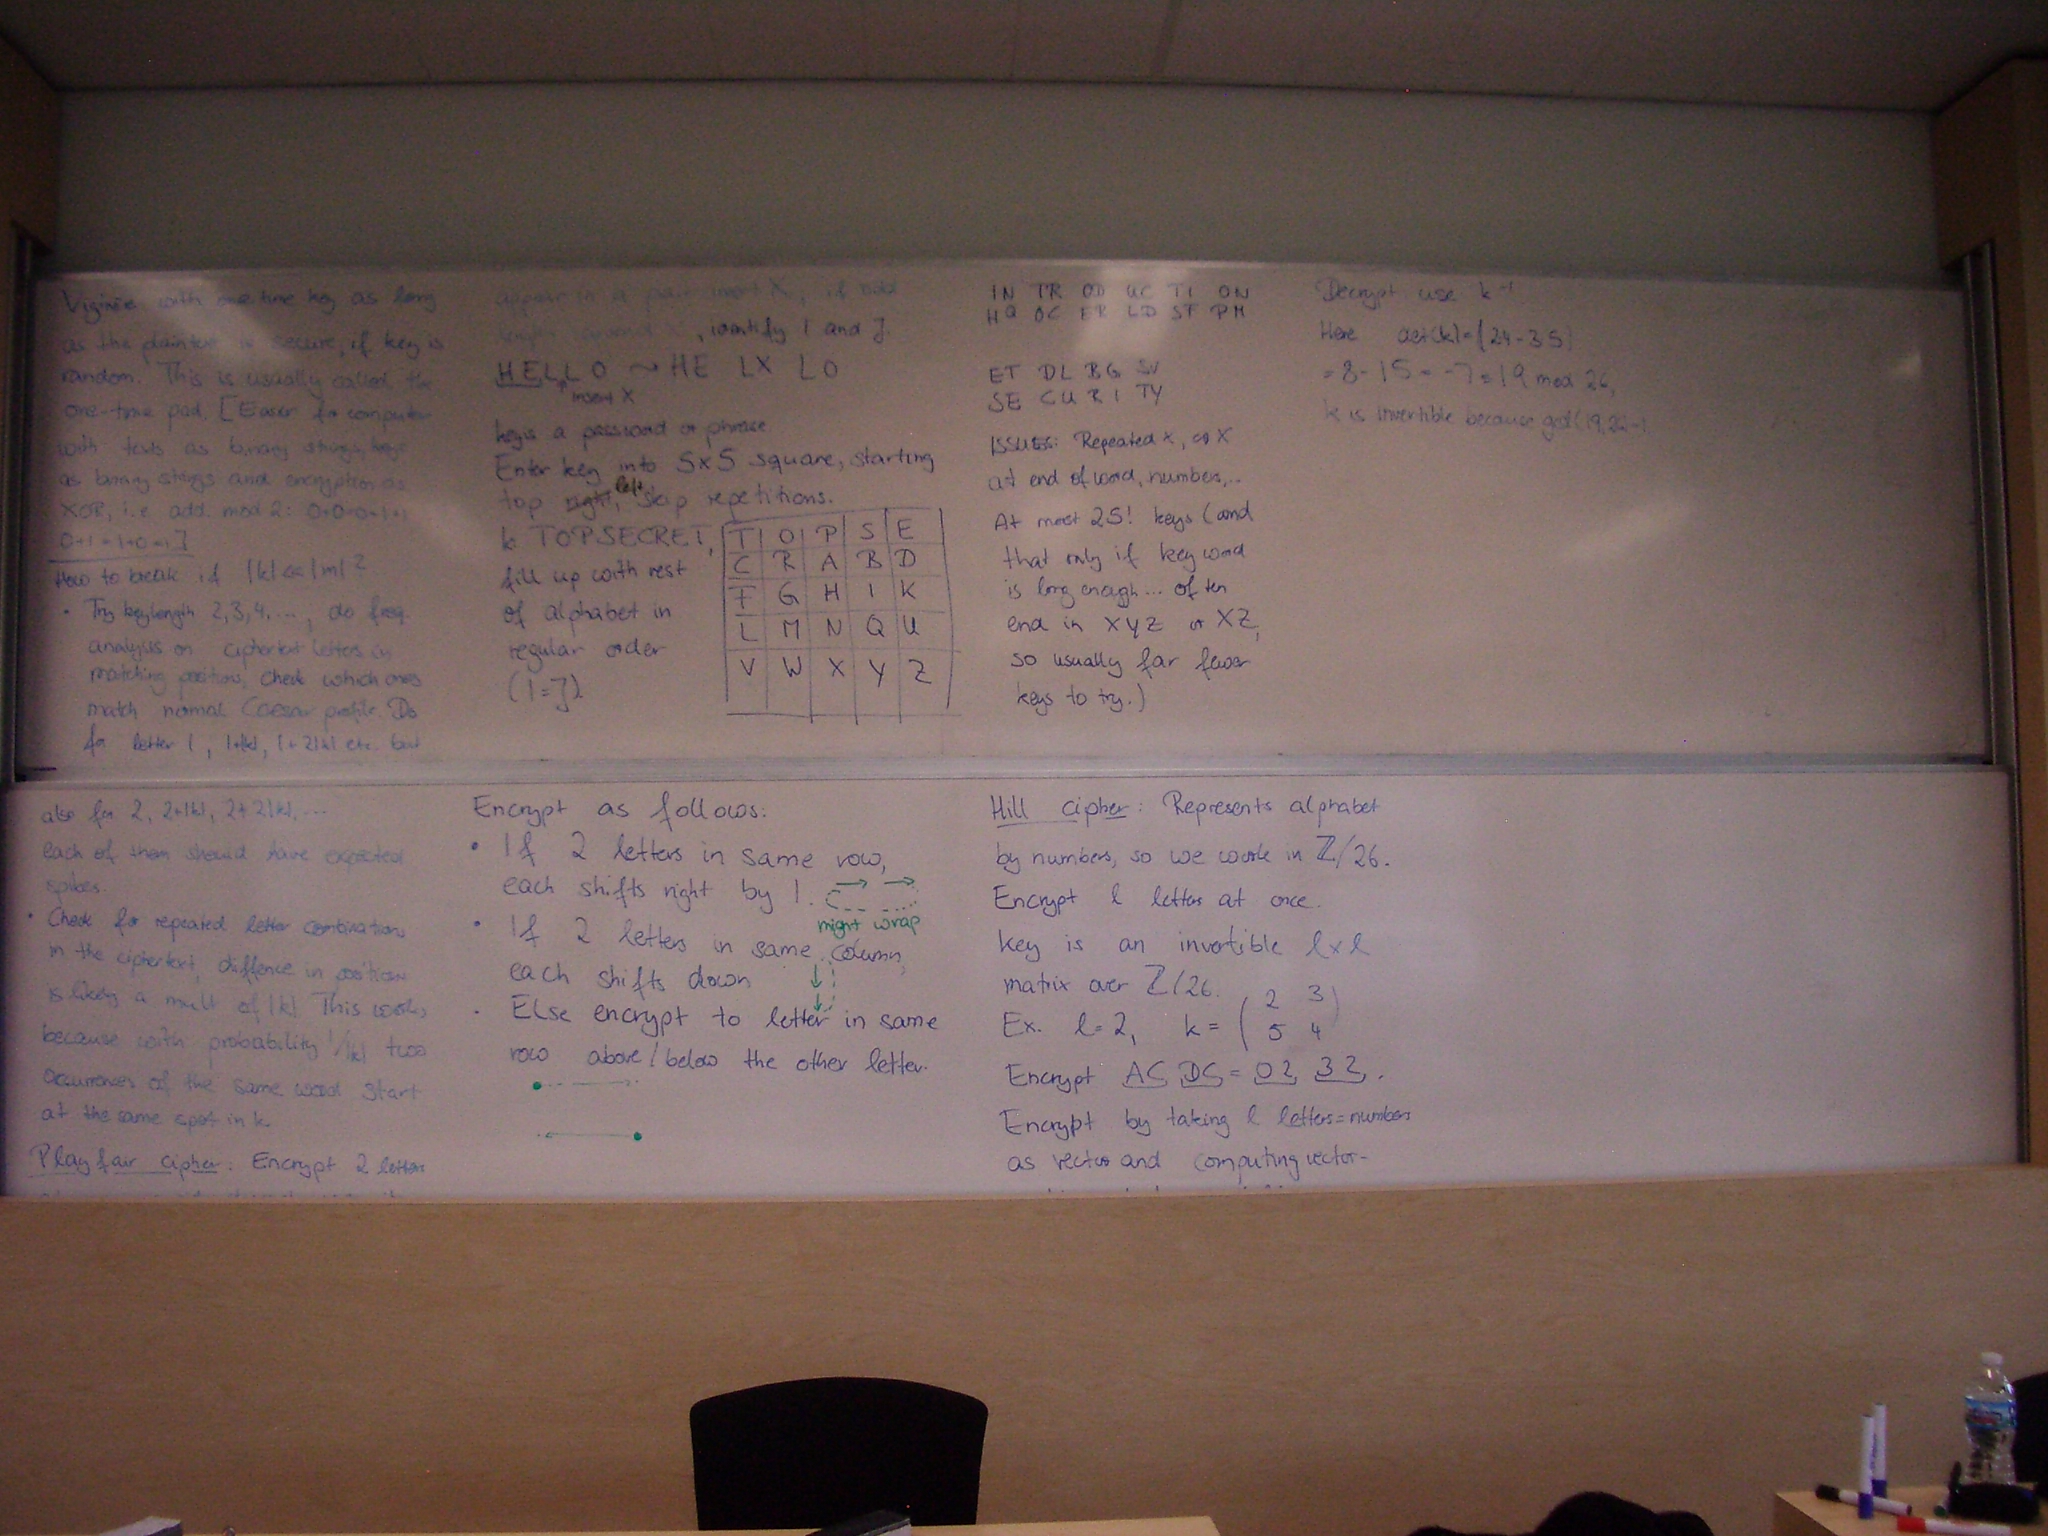 Viginère with one time key as long
as the plaintext is secure, if key is
random. This is usually called the
one-time pad. [Easier for computer
with texts as binary strings, keys
as binary strings and encryption as
XOR, i.e. add. mod 2: 0+0=0=1+1
0+1=1+0=1]
How to break if |k| << |m| ?
• Try keylength 2,3,4,..., do freq.
analysis on ciphertext letters in
matching positions, check which ones
match normal Caesar profile. Do
for letter 1, 1+|k|, 1+2|k| etc. but
also for 2, 2+|k|, 2+2|k|, ...
each of them should have expected
spikes.
• Check for repeated letter combinations
in the ciphertext, diffence in position
is likely a mult of |k|. This works,
because with probability 1/|k| two
occurrences of the same word start
at the same spot in k.
Playfair cipher: Encrypt 2 letters
appear in a pair insert X, if odd
length X, identify I and J.
HELLO ~ HE LX LO
insert X
key is a password or phrase.
Enter key into 5x5 square, starting
top right, left, skip repetitions.
k TOPSECRET,
fill up with rest
of alphabet in
regular order
(I=J)
T O P S E
C R A B D
F G H I K
L M N Q U
V W X Y Z
Encrypt as follows:
• If 2 letters in same row,
each shifts right by 1.
might wrap
• If 2 letters in same column,
each shifts down
• Else encrypt to letter in same
row above/below the other letter.
IN TR OD UC TI ON
HQ OC ER LD SF PM
ET DL BG SV
SE CU RI TY
ISSUES: Repeated X, or X
at end of word, numbers,...
At most 25! keys (and
that only if key word
is long enough... often
end in XYZ or XZ,
so usually far fewer
keys to try.)
Hill cipher: Represents alphabet
by numbers, so we work in ℤ/26.
Encrypt l letters at once.
key is an invertible l×l
matrix over ℤ/26.
Ex. l=2, k = (2 3
5 4)
Encrypt AC DC = 02 32.
Encrypt by taking l letters=numbers
as vector and computing vector-
Decrypt use k⁻¹
Here det(k)=(2·4-3·5)
=8-15=-7=19 mod 26,
k is invertible because gcd(19,26)=1